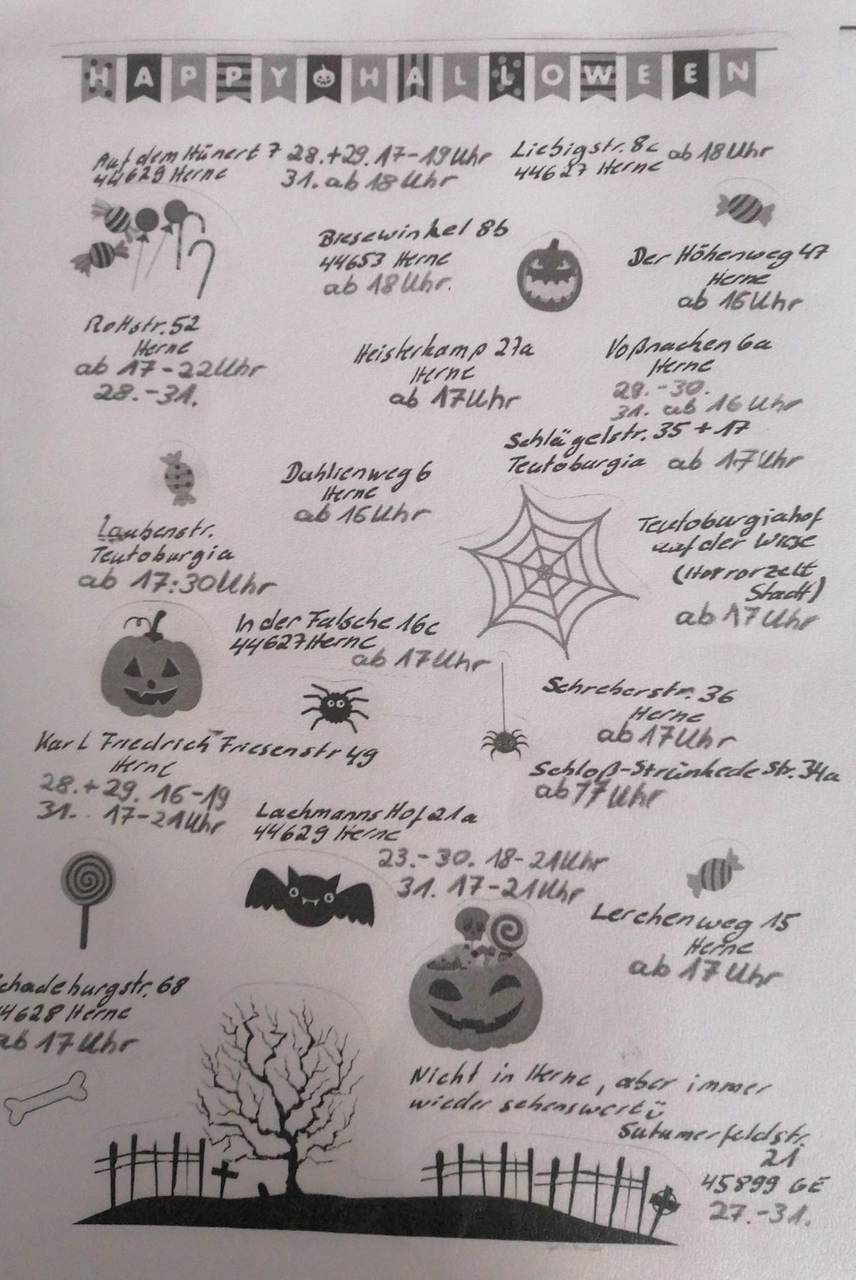 HAPPY HALLOWEEN
Auf dem Hünert 7 28.+29. 17-19 Uhr
44629 Herne 31. ab 18 Uhr
Liebigstr. 8c ab 18 Uhr
44627 Herne
Biesewinkel 8b
44653 Herne
ab 18 Uhr.
Der Höhenweg 47
Herne
ab 16 Uhr
Rottstr. 52
Herne
ab 17-22 Uhr
28.-31.
Heisterkamp 27a
Herne
ab 17 Uhr
Voßnacken 6a
Herne
28.-30.
31. ab 16 Uhr
Schlägelstr. 35 + 17
Teutoburgia ab 17 Uhr
Dahlienweg 6
Herne
ab 16 Uhr
Laubenstr.
Teutoburgia
ab 17:30 Uhr
Teutoburgiahof
auf der Wiese
(Horrorzelt
Stadt)
ab 17 Uhr
In der Falsche 16c
44627 Herne
ab 17 Uhr
Schreberstr. 36
Herne
ab 17 Uhr
Karl Friedrich Friesenstr 49
Herne
28.+29. 16-19
31. 17-21 Uhr
Schloß-Strünkede Str. 34a
ab 17 Uhr
Lachmanns Hof 21a
44629 Herne
23.-30. 18-21 Uhr
31. 17-21 Uhr
Lerchenweg 15
Herne
ab 17 Uhr
chadeburgstr. 68
4628 Herne
ab 17 Uhr
Nicht in Herne, aber immer
wieder sehenswert ü
Sutumerfeldstr.
21
45899 GE
27.-31.